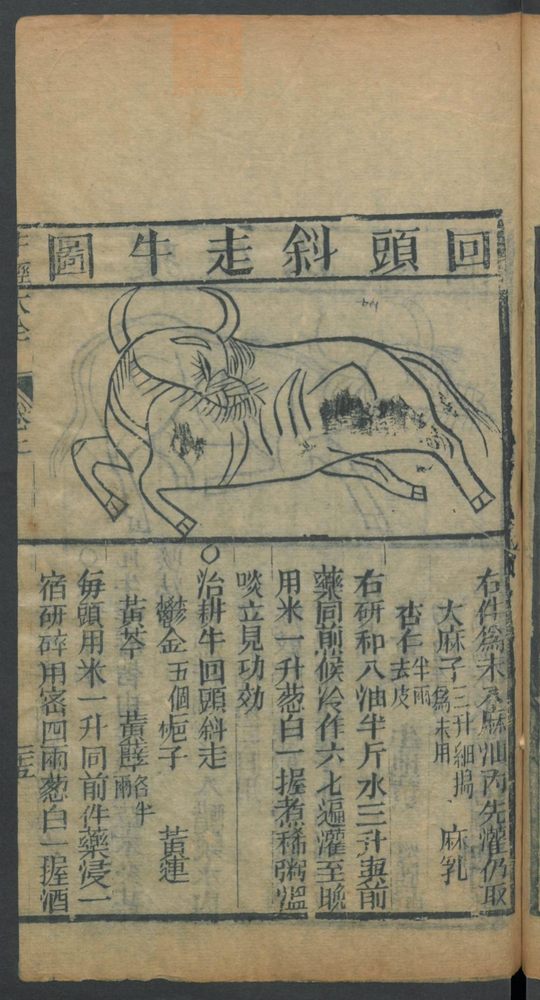 回頭斜走牛圖
右件為末入麻油內先灌仍取
大麻子三升細搗為末用 麻乳
杏仁半兩去皮
右研和入油半斤水三升與前
藥同煎候冷作六七遍灌至晚
用米一升葱白一握煮稀粥溫
啖立見功效
○治耕牛回頭斜走
鬱金五個 梔子 黃連
黃芩 黃蘗各半兩
○每頭用米一升同前件藥浸一
宿研碎用密四兩葱白一握酒
牛經大全